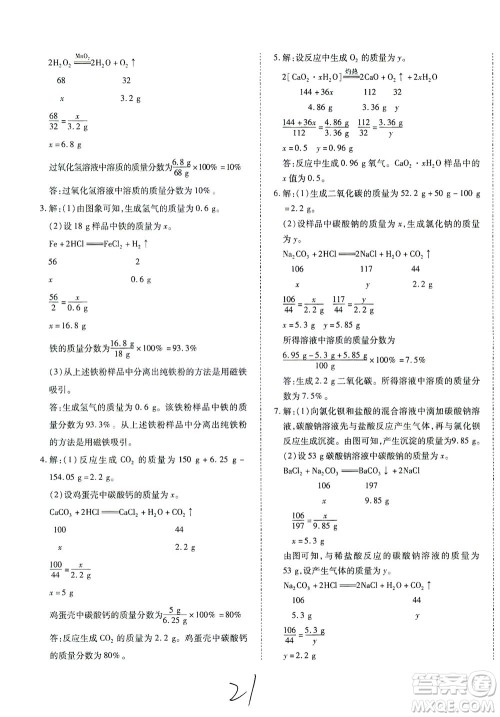 2H₂O₂ =MnO₂= 2H₂O + O₂↑
68 32
x 3.2 g
68/32 = x/3.2 g
x=6.8 g
过氧化氢溶液中溶质的质量分数 6.8 g/68 g ×100%
答:过氧化氢溶液中溶质的质量分数为 10%。
3.解:(1)由图象可知,生成氢气的质量为 0.6 g。
(2)设 18 g 样品中铁的质量为 x。
Fe + 2HCl══FeCl₂ + H₂↑
56 2
x 0.6 g
56/2 = x/0.6 g
x=16.8 g
铁的质量分数为 16.8 g/18 g ×100%≈93.3%
(3)从上述铁粉样品中分离出纯铁粉的方法是用磁铁
吸引。
答:生成氢气的质量为 0.6 g。该铁粉样品中铁的质量
分数为 93.3%。从上述铁粉样品中分离出纯铁粉
的方法是用磁铁吸引。
4.解:(1)反应生成 CO₂ 的质量为 150 g + 6.25 g-
154.05 g=2.2 g。
(2)设鸡蛋壳中碳酸钙的质量为 x。
CaCO₃ + 2HCl══CaCl₂ + H₂O + CO₂↑
100 44
x 2.2 g
100/44 = x/2.2 g
x=5 g
鸡蛋壳中碳酸钙的质量分数为 5 g/6.25 g ×100%=80%
答:反应生成 CO₂ 的质量为 2.2 g。鸡蛋壳中碳酸钙
的质量分数为 80%。
5.解:设反应中生成 O₂ 的质量为 y。
2[CaO₂·xH₂O] =灼热= 2CaO + O₂↑+2xH₂O
144+36x 32
4.86 g y
144+36x/4.86 g = 4.86 g/y
x=0.5 y=0.96 g
答:反应中生成 0.96 g 氧气。CaO₂·xH₂O 样品中的
x 值为 0.5。
6.解:(1)生成二氧化碳的质量为 52.2 g+50 g-100 g
=2.2 g。
(2)设样品中碳酸钠的质量为 x,生成氯化钠的质量
为 y。
Na₂CO₃ + 2HCl══2NaCl + H₂O + CO₂↑
106 117 44
x y 2.2 g
106/44 = x/2.2 g 117/44 = y/2.2 g
x=5.3 g y=5.85 g
所得溶液中溶质的质量分数为
6.95 g-5.3 g+5.85 g/100 g ×100%=7.5%
答:生成 2.2 g 二氧化碳。所得溶液中溶质的质量分
数为 7.5%。
7.解:(1)向氯化钡和盐酸的混合溶液中滴加碳酸钠溶
液,碳酸钠溶液先与盐酸反应产生气体,再与氯化钡反
应生成沉淀。由图可知,产生沉淀的质量为9.85 g。
(2)设53 g溶液中与氯化钡反应的碳酸钠的质量为x。
BaCl₂ + Na₂CO₃══2NaCl + BaCO₃↓
106 197
x 9.85 g
106/197 = x/9.85 g
x=5.3 g
由图可知,与稀盐酸反应的碳酸钠溶液的质量为
53 g,设产生气体的质量为 y。
Na₂CO₃ + 2HCl══2NaCl + H₂O + CO₂↑
106 44
5.3 g y
106/44 = 5.3 g/y
21